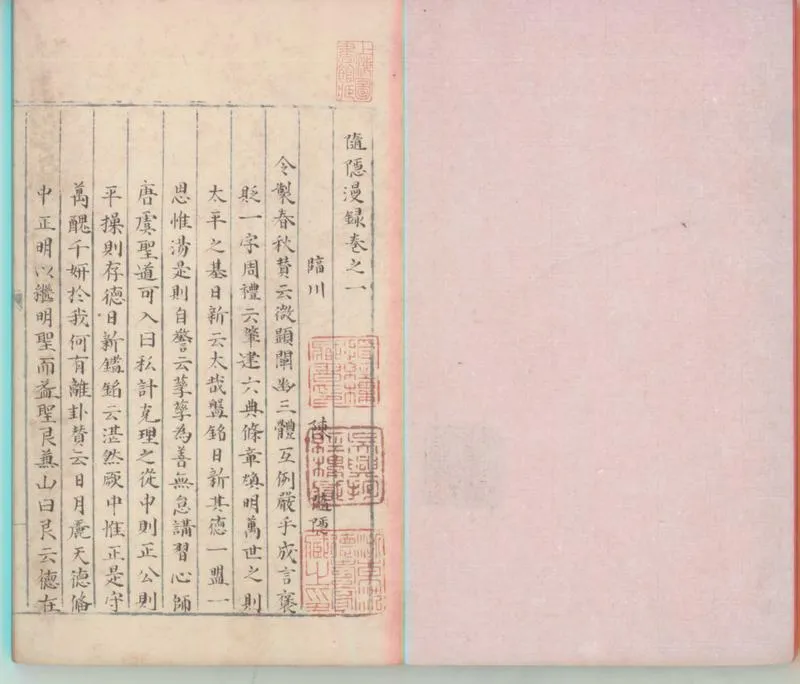 隨隱漫録卷之一
臨川 陳 隨隱
令製春秋賛云微顯闡幽三體互例嚴乎成言襃
貶一字周禮云肇建六典條章煥明萬世之則
太平之基日新云大哉盤銘日新其德一盥一
思惟湯是則自警云孳孳為善無怠講習心師
唐虞聖道可入曰私計克理之從中則正公則
平操則存德日新鑑銘云湛然厥中惟正是守
萬醜千妍於我何有離卦賛云日月麗天德脩
中正明以繼明聖而益聖艮兼山曰艮云德在
上海圖書館藏